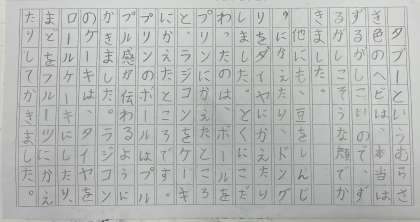 タブーというむらさ
き色のヘビは、本当は
ずるがしこいので、ず
るがしこそうな顔でか
きました。
他にも、豆をしんじ
ゅにかえたり、ドング
リをダイヤにかえたり
しました。とくにこだ
わったのは、ボールを
プリンにかえたところ
と、ラジコンをケーキ
にかえたところです。
プリンのボールはプル
プル感が伝わるように
かきました。ラジコン
のケーキは、タイヤを
ロールケーキにしたり、
まどをフルーツにかえ
たりしてかきました。